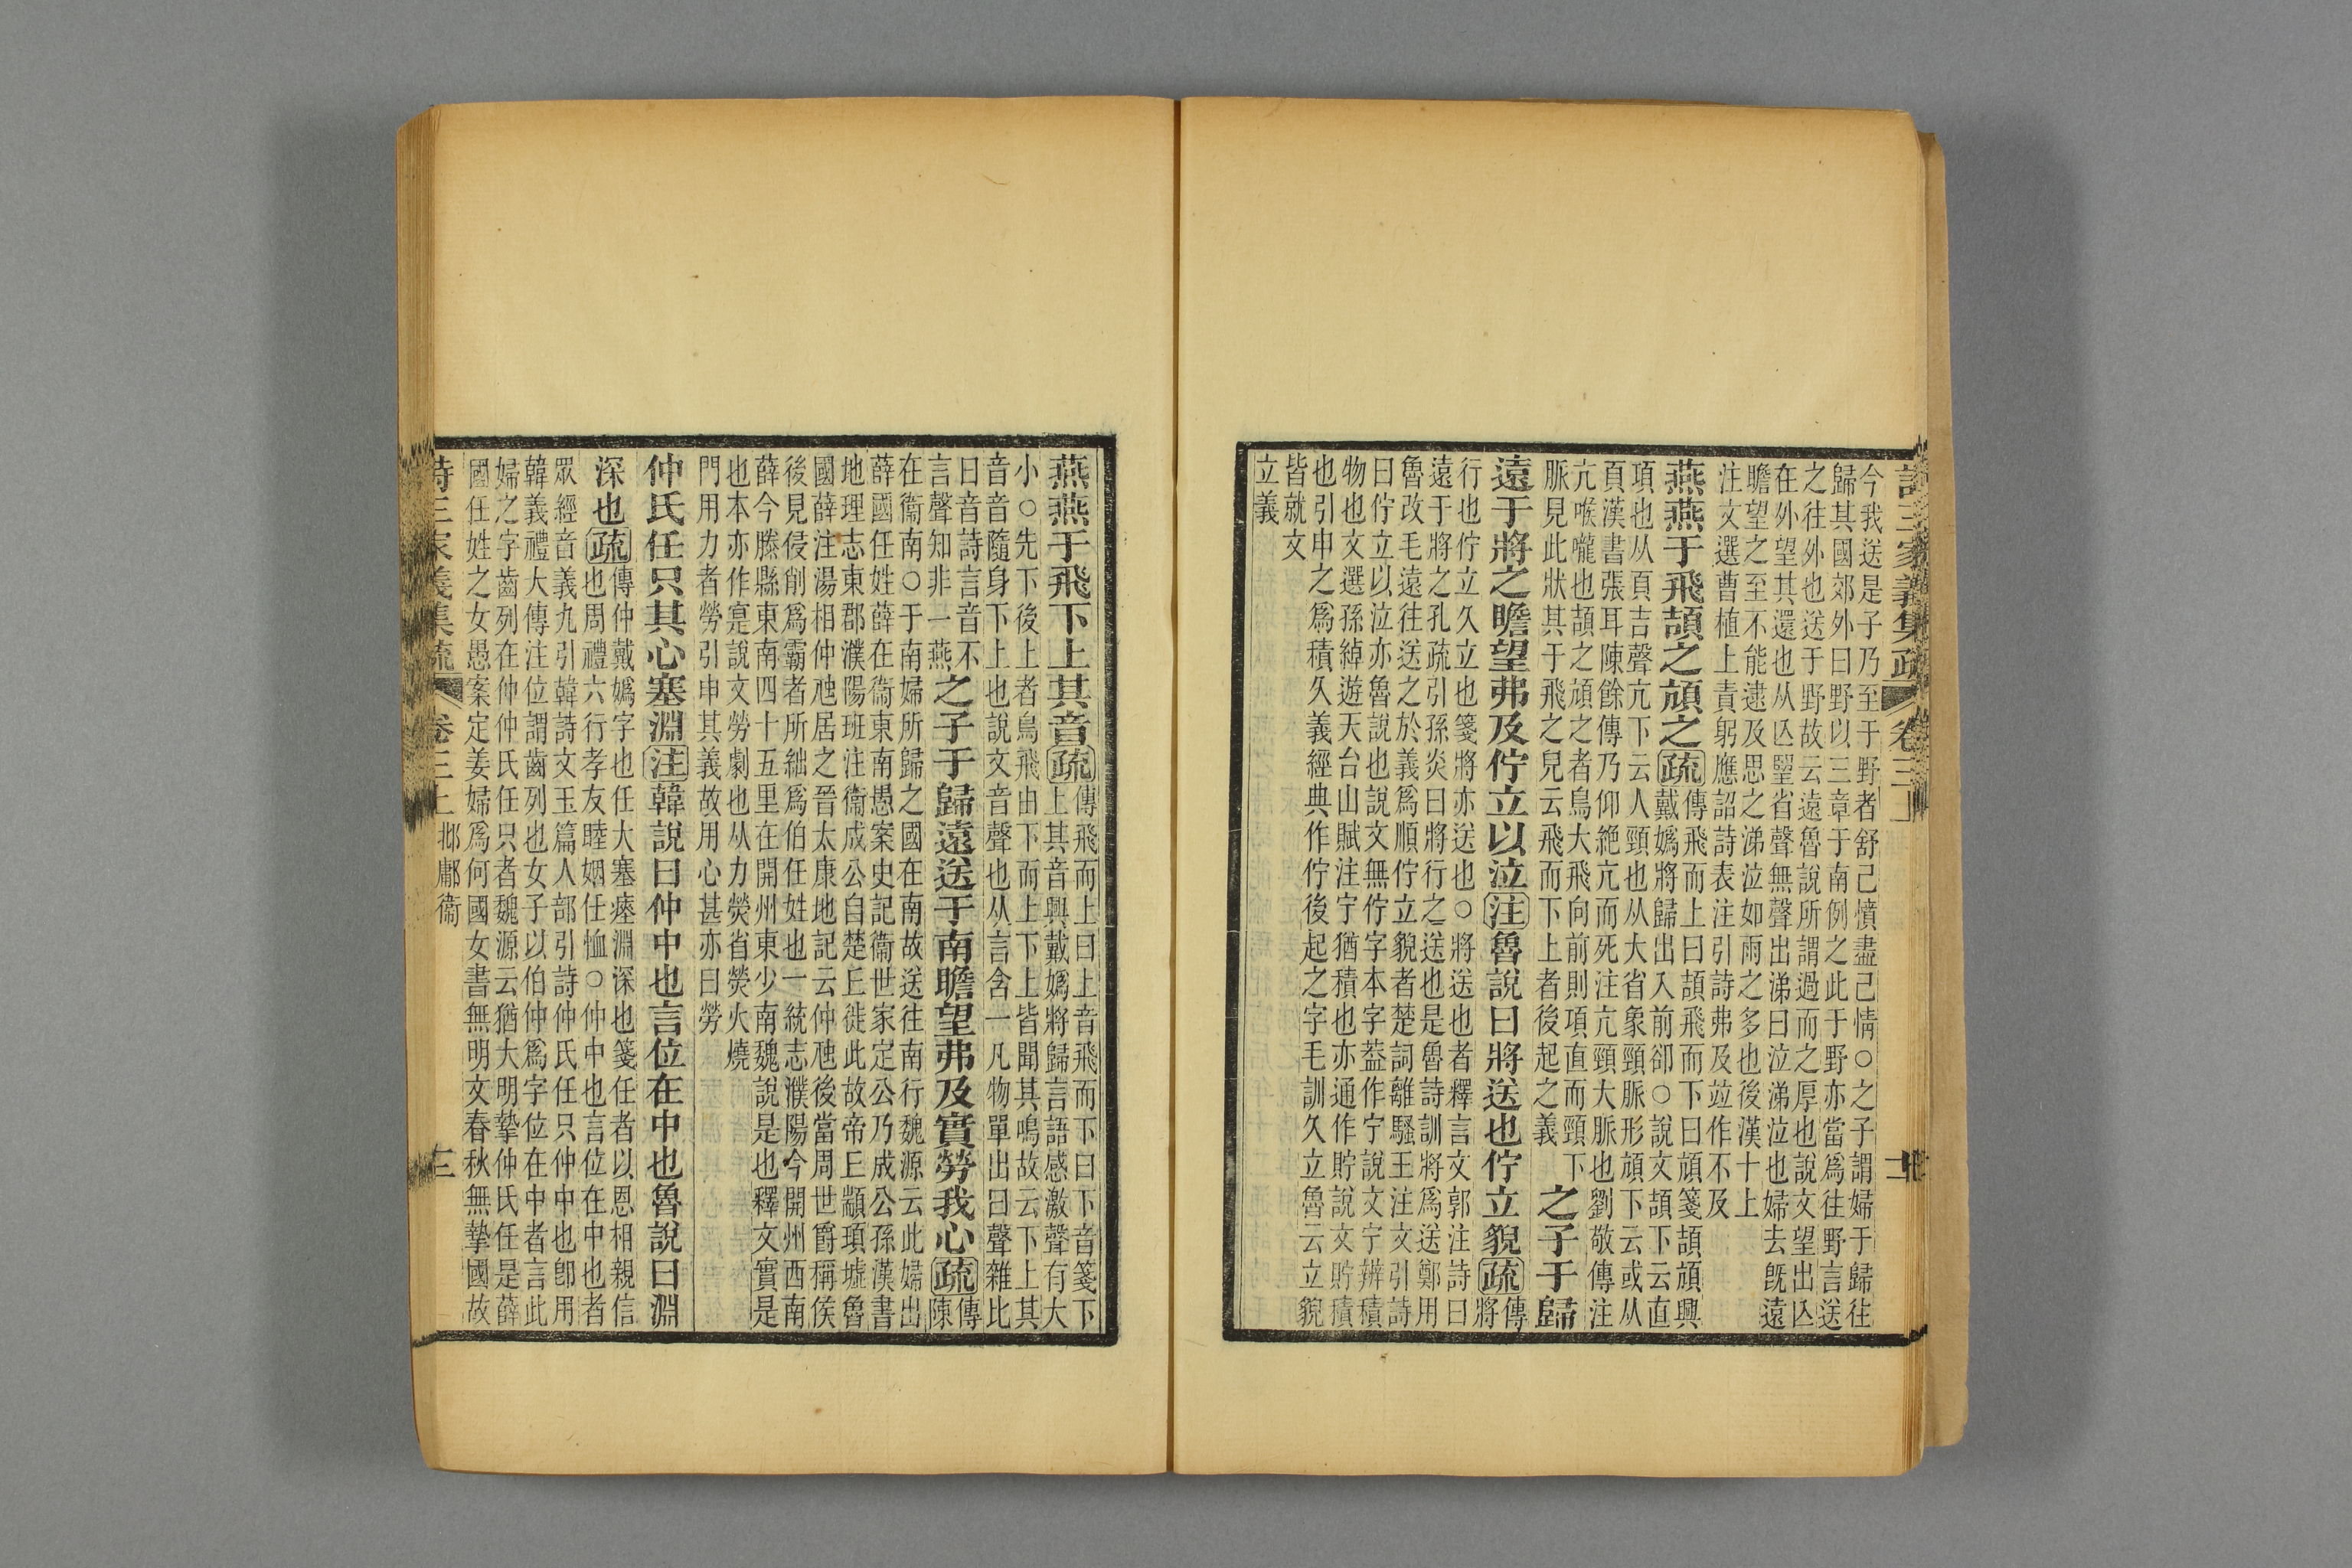 詩三家義集疏 卷三上 二
今我送是子乃至于野者舒己憤盡己情○之子謂婦于歸往
歸其國郊外曰野以三章于南例之此于野亦當爲往野言送
之往外也送于野故云遠魯說所謂過而之厚也說文望出亾
在外望其還也从亾朢省聲無聲出涕曰泣涕泣也婦去旣遠
瞻望之至不能逮及思之涕泣如雨之多也後漢十上
注文選曹植上責躬應詔詩表注引詩弗及竝作不及
燕燕于飛頡之頏之疏傳飛而上曰頡飛而下曰頏箋頡頏興
戴嬀將歸出入前卻○說文頡下云直
項也从頁吉聲亢下云人頸也从大省象頸脈形頏下云或从
頁漢書張耳陳餘傳乃仰絕亢而死注亢頸大脈也劉敬傳注
亢喉嚨也頡之頏之者鳥大飛向前則項直而頸下
脈見此狀其于飛之皃云飛而下上者後起之義
之子于歸
遠于將之瞻望弗及佇立以泣注魯說曰將送也佇立貌疏傳
將
行也佇立久立也箋將亦送也○將送也者釋言文郭注詩曰
遠于將之孔疏引孫炎曰將行之送也是魯詩訓將爲送鄭用
魯改毛遠往送之於義爲順佇立貌者楚詞離騷王注文引詩
曰佇立以泣亦魯說也說文無佇字本字葢作宁說文宁辨積
物也文選孫綽遊天台山賦注宁猶積也亦通作貯說文貯積
也引申之爲積久義經典作佇後起之字毛訓久立魯云立貌
皆就文
立義
燕燕于飛下上其音疏傳飛而上曰上音飛而下曰下音箋下
上其音興戴嬀將歸言語感激聲有大
小○先下後上者鳥飛由下而上下上皆聞其鳴故云下上其
音音隨身下上也說文音聲也从言含一凡物單出曰聲雜比
曰音詩言音不
言聲知非一燕之子于歸遠送于南瞻望弗及實勞我心疏傳
陳
在衞南○于南婦所歸之國在南故送往南行魏源云此婦出
薛國任姓薛在衞東南愚案史記衞世家定公乃成公孫漢書
地理志東郡濮陽班注衞成公自楚丘徙此故帝丘顓頊墟魯
國薛注湯相仲虺居之晉太康地記云仲虺後當周世爵稱侯
後見侵削爲霸者所絀爲伯任姓也一統志濮陽今開州西南
薛今滕縣東南四十五里在開州東少南魏說是也釋文實是
也本亦作寔說文勞劇也从力熒省熒火燒
門用力者勞引申其義故用心甚亦曰勞
仲氏任只其心塞淵注韓說曰仲中也言位在中也魯說曰淵
深也疏傳仲戴嬀字也任大塞瘞淵深也箋任者以恩相親信
也周禮六行孝友睦姻任恤○仲中也言位在中也者
眾經音義九引韓詩文玉篇人部引詩仲氏任只仲中也卽用
韓義禮大傳注位謂齒列也女子以伯仲爲字位在中者言此
婦之字齒列在仲仲氏任只者魏源云猶大明摯仲氏任是薛
國任姓之女愚案定姜婦爲何國女書無明文春秋無摯國故
詩三家義集疏 卷三上 邶鄘衞 三